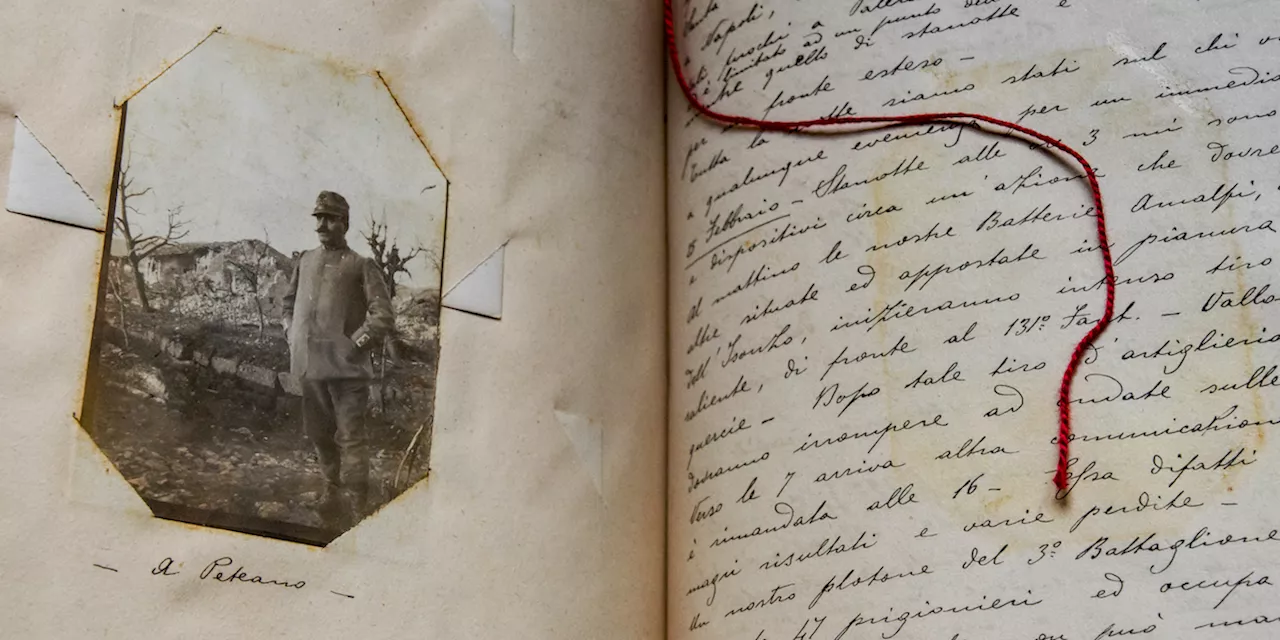 — A Peteano —
Napoli,
è limitato ad un punto
che quello di stanotte e
per fronte esteso —
Tutta la notte siamo stati sul chi v
a qualunque evenienza per un immedia
8 Febbraio — Stanotte alle ore 3 mi sono
e dispositivi circa un'azione che dovre
al mattino le nostre Batterie Amalfi,
altre situate ed appostate in pianura
dell'Isonzo, inizieranno intenso tiro
saliente, di fronte al 131º Fant. — Vallo
quercie — Dopo tale tiro d'artiglieria
dovranno irrompere ad ondate sulle
Verso le 7 arriva altra comunicazion
è rimandata alle 16 — Essa difatti
magri risultati e varie perdite —
Un nostro plotone del 3º Battaglione
47 prigionieri ed occupa
può